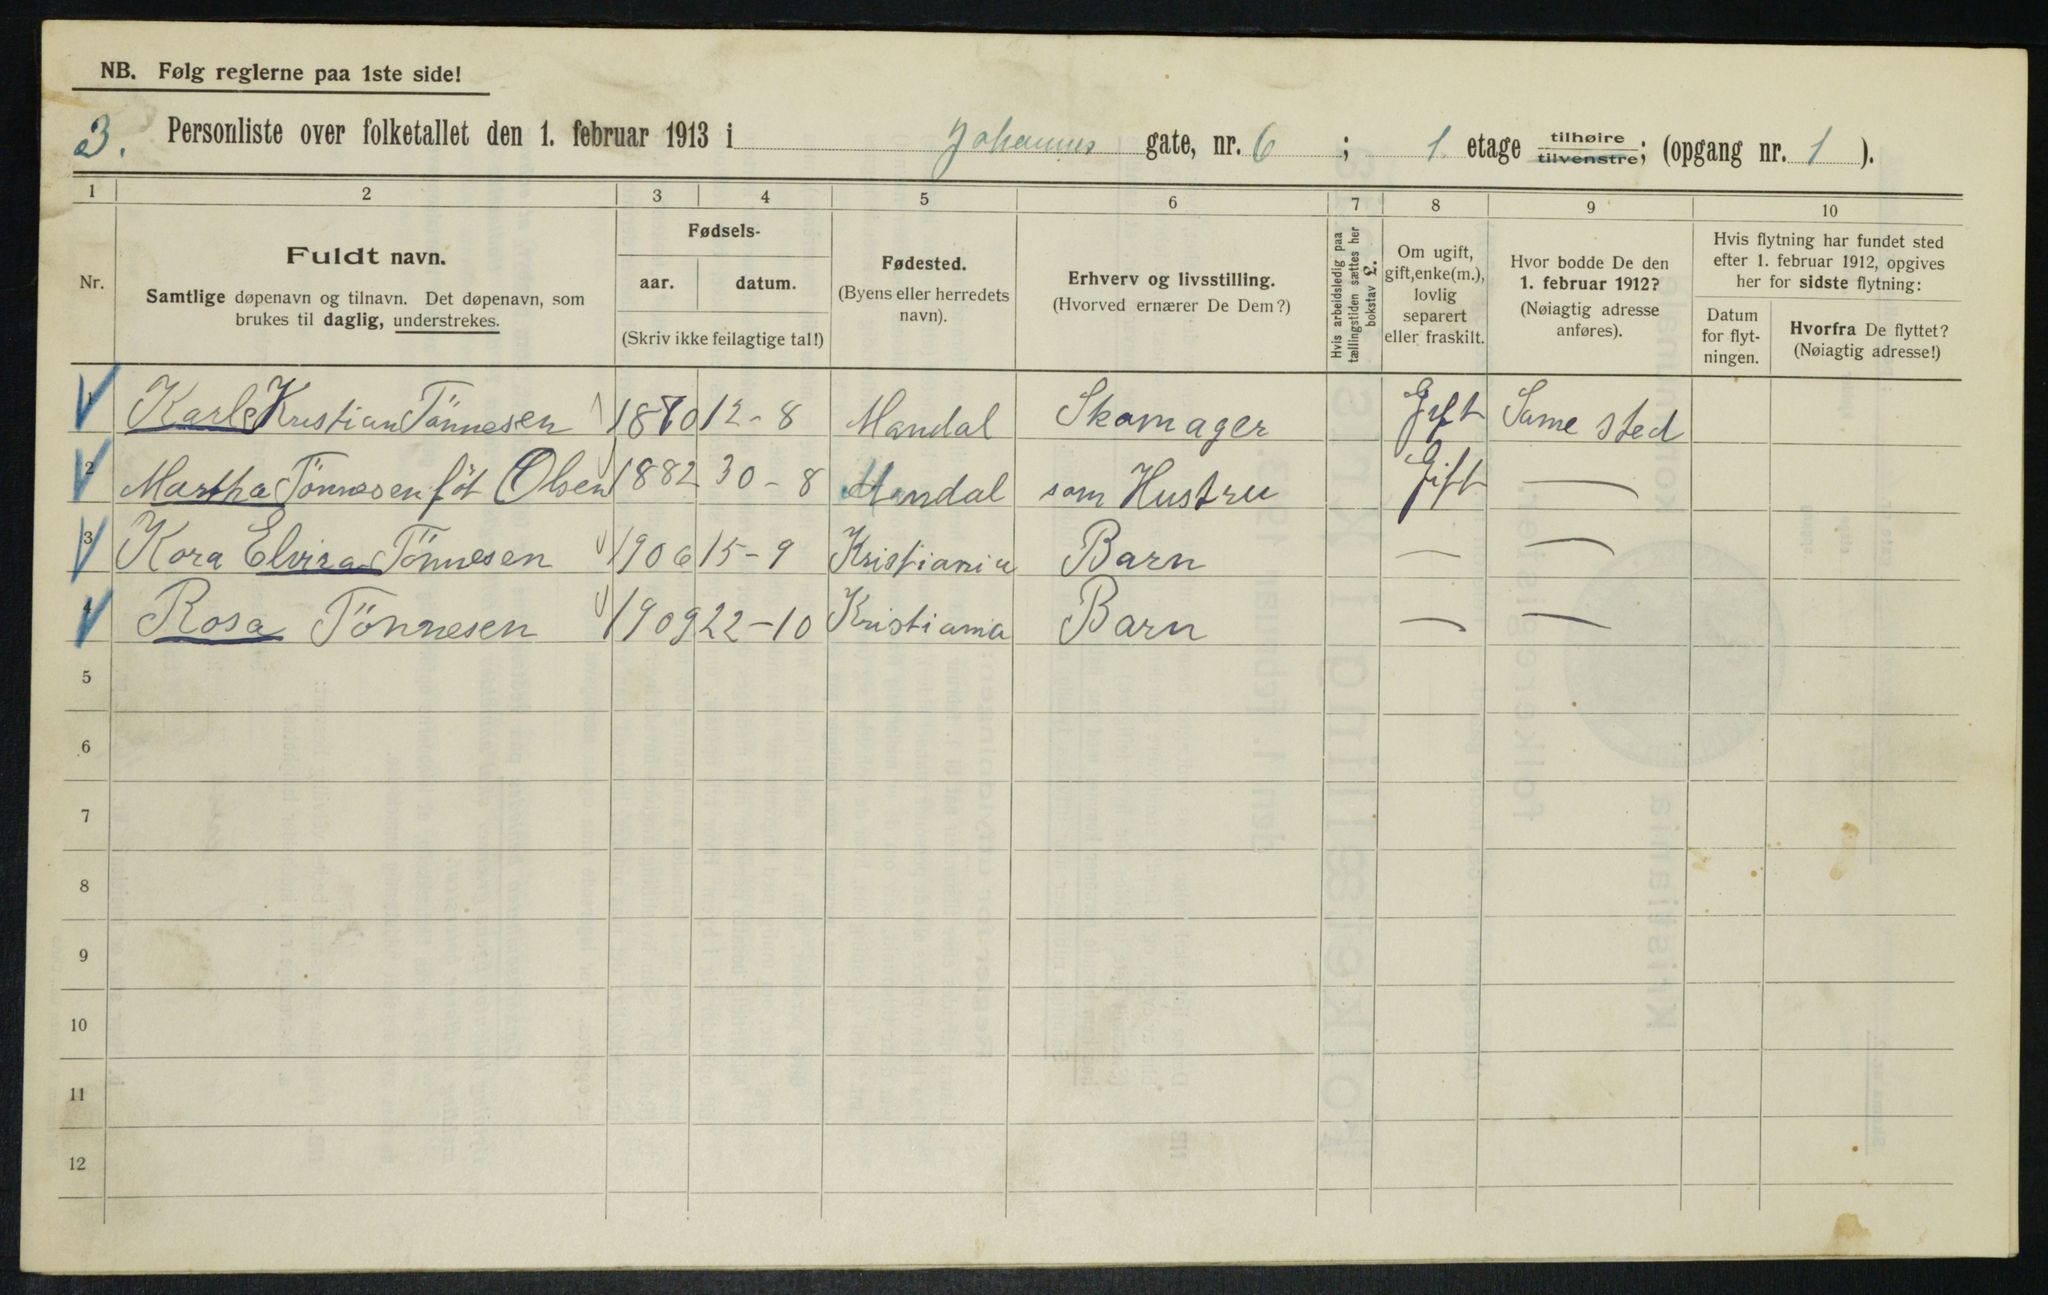 NB. Følg reglerne paa 1ste side!
3. Personliste over folketallet den 1. februar 1913 i Johannes gate, nr. 6 ; 1. etage tilhøire tilvenstre; (opgang nr. 1 ).
1 2 3 4 5 6 7 8 9 10
Nr.
Fuldt navn.
Samtlige døpenavn og tilnavn. Det døpenavn, som
brukes til daglig, understrekes.
Fødsels-
aar. datum.
(Skriv ikke feilagtige tal!)
Fødested.
(Byens eller herredets
navn).
Erhverv og livsstilling.
(Hvorved ernærer De Dem?)
Hvis arbeidsledig paa
tællingstiden sættes her
bokstav L.
Om ugift,
gift, enke(m.),
lovlig
separert
eller fraskilt.
Hvor bodde De den
1. februar 1912?
(Nøiagtig adresse
anføres).
Hvis flytning har fundet sted
efter 1. februar 1912, opgives
her for sidste flytning:
Datum
for flyt-
ningen.
Hvorfra De flyttet?
(Nøiagtig adresse!)
1 Karl Kristian Tönnesen 1870 12-8 Mandal Skomager Gift Same sted
2 Martha Tönnesen föt Olsen 1882 30-8 Mandal som Hustru Gift —
3 Kora Elvira Tönnesen 1906 15-9 Kristiania Barn — —
4 Rosa Tönnesen 1909 22-10 Kristiania Barn — —
5
6
7
8
9
10
11
12